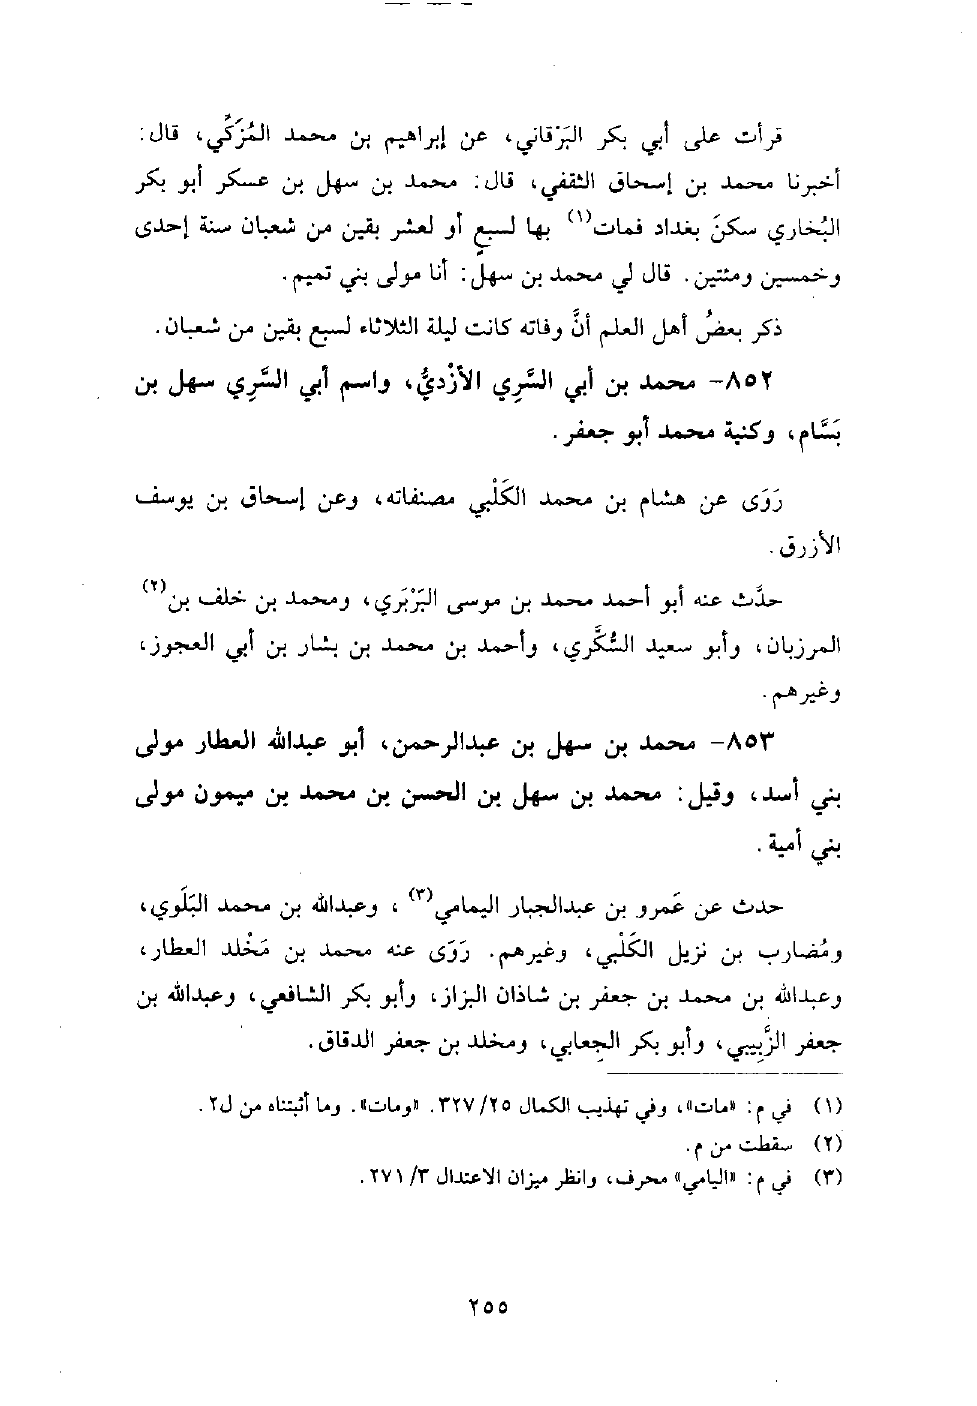 قرأت على أبي بكر البَرْقاني، عن إبراهيم بن محمد المُزَكِّي، قال:
أخبرنا محمد بن إسحاق الثقفي، قال: محمد بن سهل بن عسكر أبو بكر
البُخاري سكنَ بغداد فمات(١) بها لسبعٍ أو لعشر بقين من شعبان سنة إحدى
وخمسين ومئتين. قال لي محمد بن سهل: أنا مولى بني تميم.
ذكر بعضُ أهل العلم أنَّ وفاته كانت ليلة الثلاثاء لسبع بقين من شعبان.
٨٥٢- محمد بن أبي السَّرِي الأزْديُّ، واسم أبي السَّرِي سهل بن
بَسَّام، وكنية محمد أبو جعفر.
رَوَى عن هشام بن محمد الكَلْبي مصنفاته، وعن إسحاق بن يوسف
الأزرق.
حدَّث عنه أبو أحمد محمد بن موسى البَرْبَري، ومحمد بن خلف بن(٢)
المرزبان، وأبو سعيد السُّكَّري، وأحمد بن محمد بن بشار بن أبي العجوز،
وغيرهم.
٨٥٣- محمد بن سهل بن عبدالرحمن، أبو عبدالله العطار مولى
بني أسد، وقيل: محمد بن سهل بن الحسن بن محمد بن ميمون مولى
بني أمية.
حدث عن عَمرو بن عبدالجبار اليمامي(٣)، وعبدالله بن محمد البَلَوي،
ومُضارب بن نزيل الكَلْبي، وغيرهم. رَوَى عنه محمد بن مَخْلد العطار،
وعبدالله بن محمد بن جعفر بن شاذان البزاز، وأبو بكر الشافعي، وعبدالله بن
جعفر الزَّبِيبي، وأبو بكر الجِعابي، ومخلد بن جعفر الدقاق.
(١) في م: «مات»، وفي تهذيب الكمال ٢٥/ ٣٢٧. «ومات». وما أثبتناه من ل٢.
(٢) سقطت من م.
(٣) في م: «اليامي» محرف، وانظر ميزان الاعتدال ٣/ ٢٧١.
٢٥٥